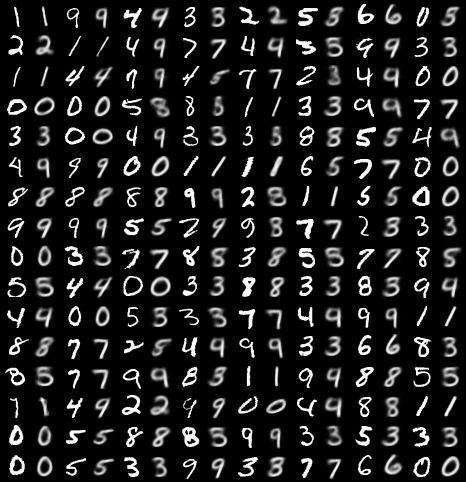 1 1 9 9 4 9 3 3 2 2 5 8 6 6 0 5
2 2 1 1 4 9 7 7 4 9 3 5 9 9 3 3
1 1 4 4 7 9 4 5 7 7 2 3 4 9 0 0
0 0 0 0 5 8 8 8 1 1 3 3 9 9 7 7
3 3 0 0 4 9 3 3 3 3 8 8 5 5 4 9
4 9 9 9 0 0 1 1 1 1 6 5 7 7 0 0
8 8 8 8 8 8 9 9 2 8 1 1 5 5 0 0
9 9 9 9 5 5 7 9 9 3 7 7 2 3 3 3
0 0 3 3 7 7 8 8 3 8 5 5 7 7 8 5
5 5 4 4 0 0 3 3 8 8 3 3 8 3 9 9
4 9 0 0 5 3 3 3 7 7 4 9 9 9 1 1
8 8 7 7 2 5 4 9 9 9 3 3 6 6 8 3
8 5 7 7 9 9 8 3 1 1 9 9 8 8 5 5
7 1 4 9 2 2 9 9 0 0 4 9 8 8 1 1
0 0 5 5 8 8 8 5 9 9 3 3 5 3 3 3
0 0 5 5 3 3 9 9 3 8 7 7 6 6 0 0